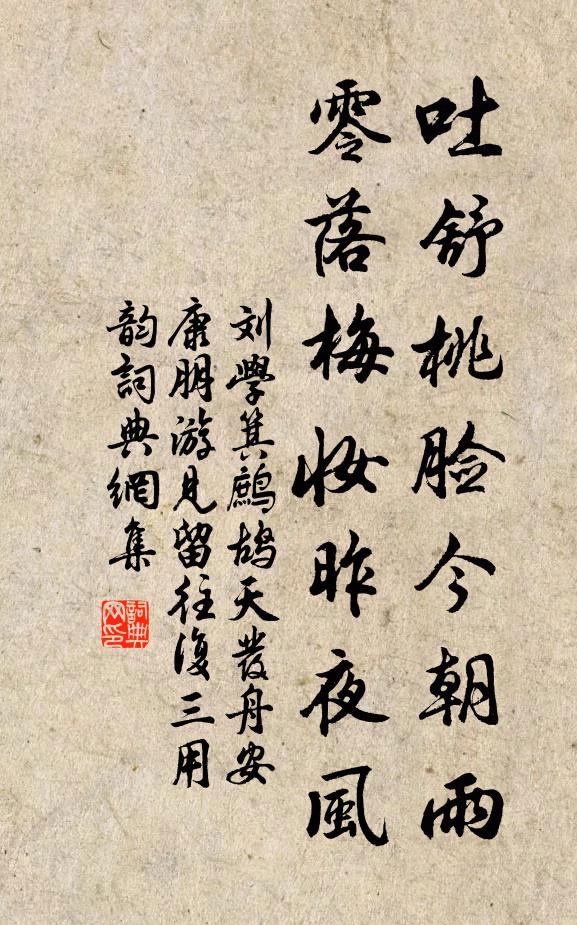 吐舒桃脸今朝雨
零落梅妆昨夜風
刘學箕鷓鴣天發舟安
康朋游見留往復三用
韵詞典網集
詞典网印